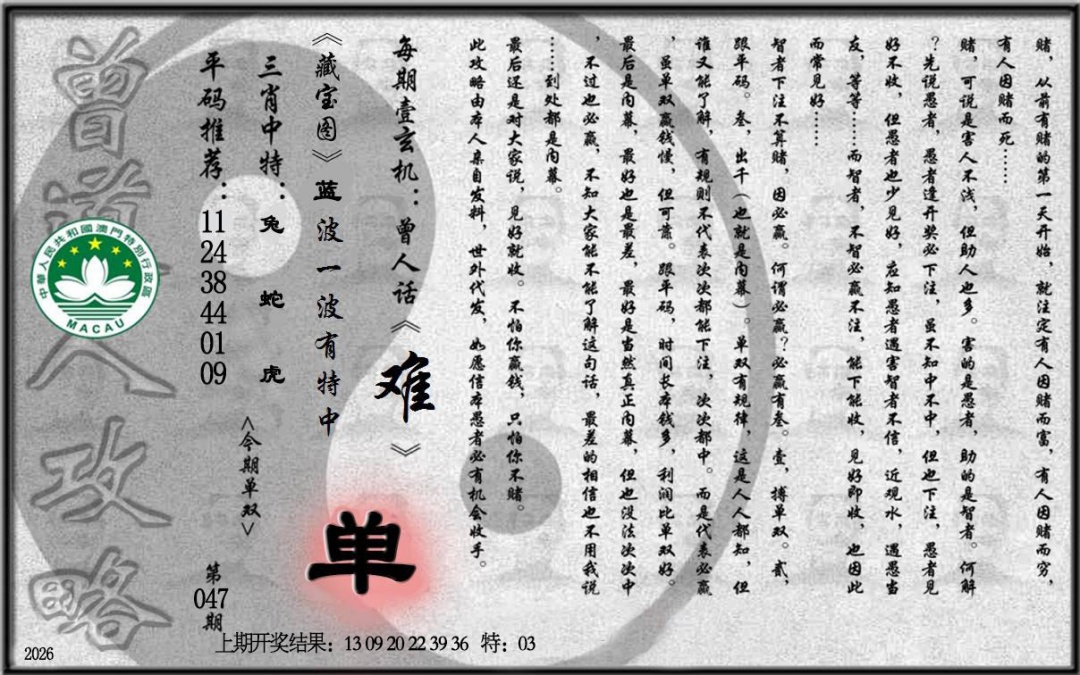 赌，从前有赌的第一天开始，就注定有人因赌而富，有人因赌而穷，
有人因赌而死……
赌，可说是害人不浅，但助人也多。害的是愚者，助的是智者。何解
？先说愚者，愚者逢开奖必下注，虽不知中不中，但也下注，愚者见
好不收，但愚者也少见好，应知愚者遇害智者不信，近观水，遇愚当
友，等等……而智者，不智必赢不注，能下能收，见好即收，也因此
而常见好……
智者下注不算赌，因必赢。何谓必赢？必赢有叁。壹，搏单双。贰，
跟单码。叁，出千（也就是内幕）。单双有规律，这是人人都知，但
谁又能了解，有规则不代表次次都能下注，次次都中。而是代表必赢
，虽单双赢钱慢，但可靠。跟单码，时间长本钱多，利润比单双好。
最后是内幕，最好也是最差，最好是当然真正内幕，但也没法次次中
，不过也必赢，不知大家能不能了解这句话，最差的相信也不用我说
……到处都是内幕。
最后还是对大家说，见好就收。不怕你赢钱，只怕你不赌。
此攻略由本人亲自发料，世外代发，如愿信本愚者必有机会收手。
每期壹玄机：曾人话《难》
《藏宝图》蓝波一波有特中
单
三肖中特：兔 蛇 虎
<今期单双>
平码推荐：11 24 38 44 01 09
第047期
曾道人攻略
中華人民共和國澳門特別行政區
MACAU
上期开奖结果：13 09 20 22 39 36 特：03
2026